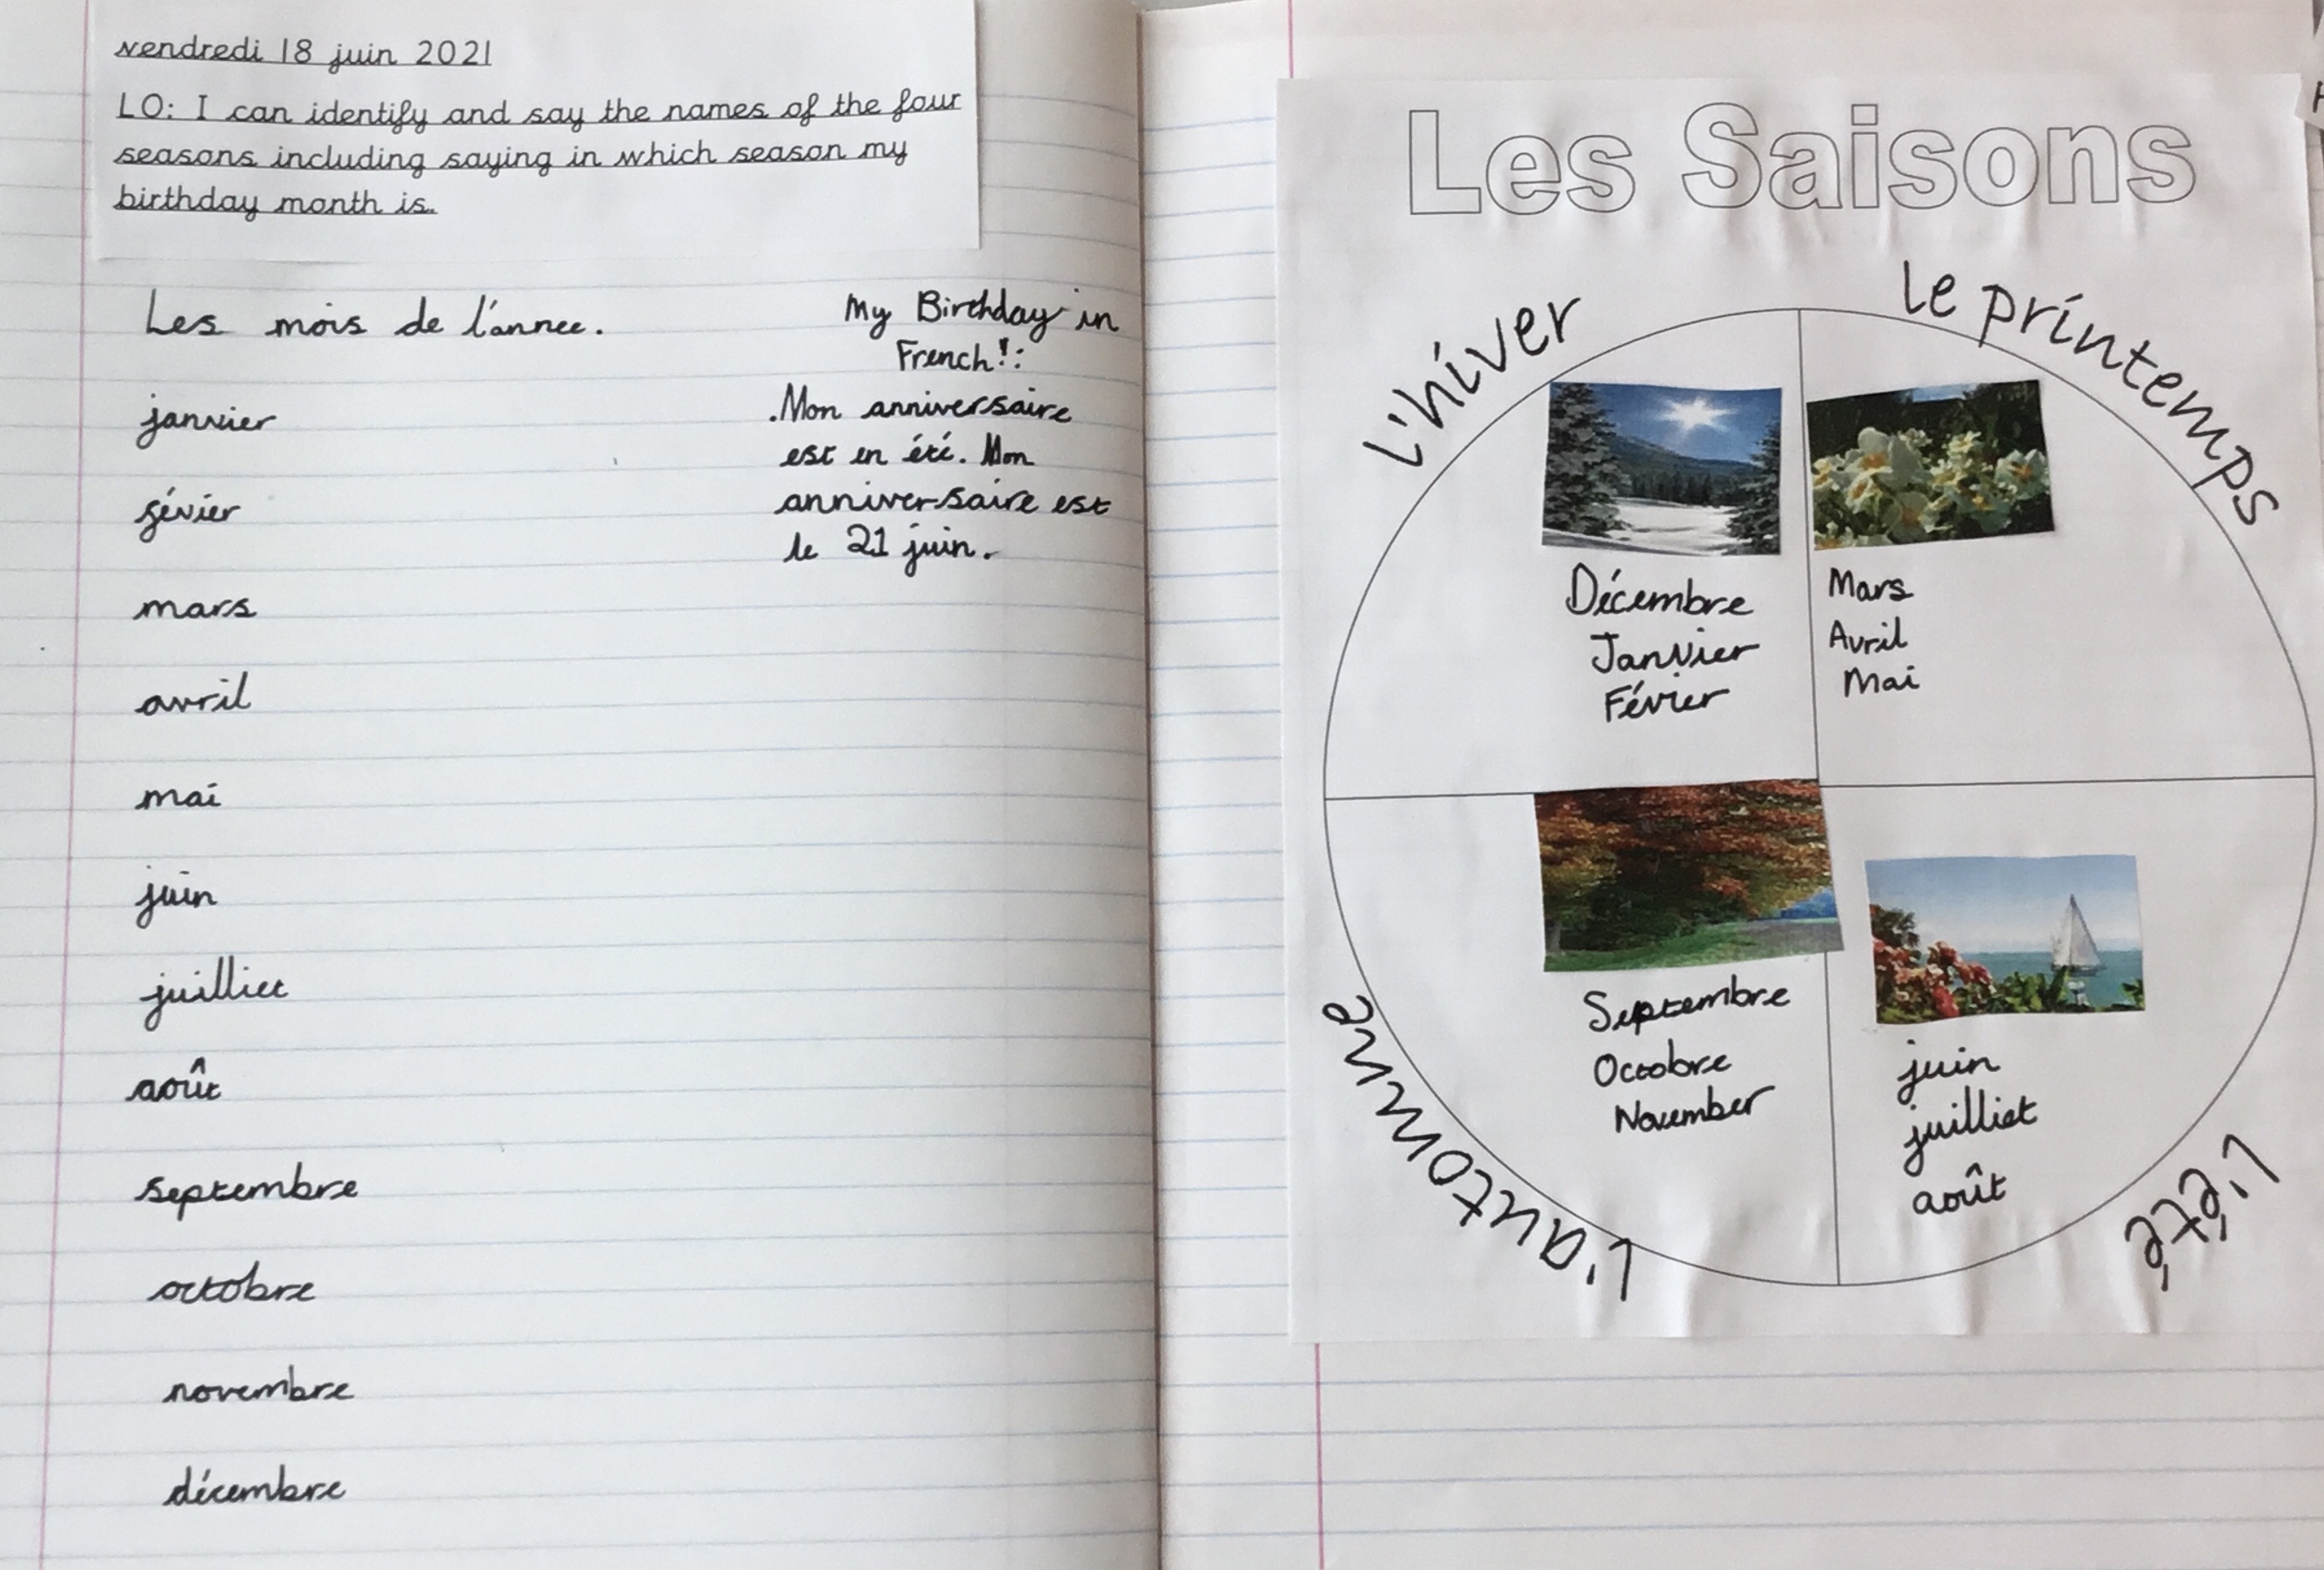 vendredi 18 juin 2021
LO: I can identify and say the names of the four
seasons including saying in which season my
birthday month is.
Les mois de l'annee.
janvier
févier
mars
avril
mai
juin
juilliet
août
septembre
octobre
novembre
décembre
My Birthday in
French!:
.Mon anniversaire
est en été. Mon
anniversaire est
le 21 juin.
Les Saisons
L'hiver
le printemps
Décembre
Janvier
Févier
Mars
Avril
Mai
Septembre
Octobre
November
juin
juilliet
août
L'automne
L'été